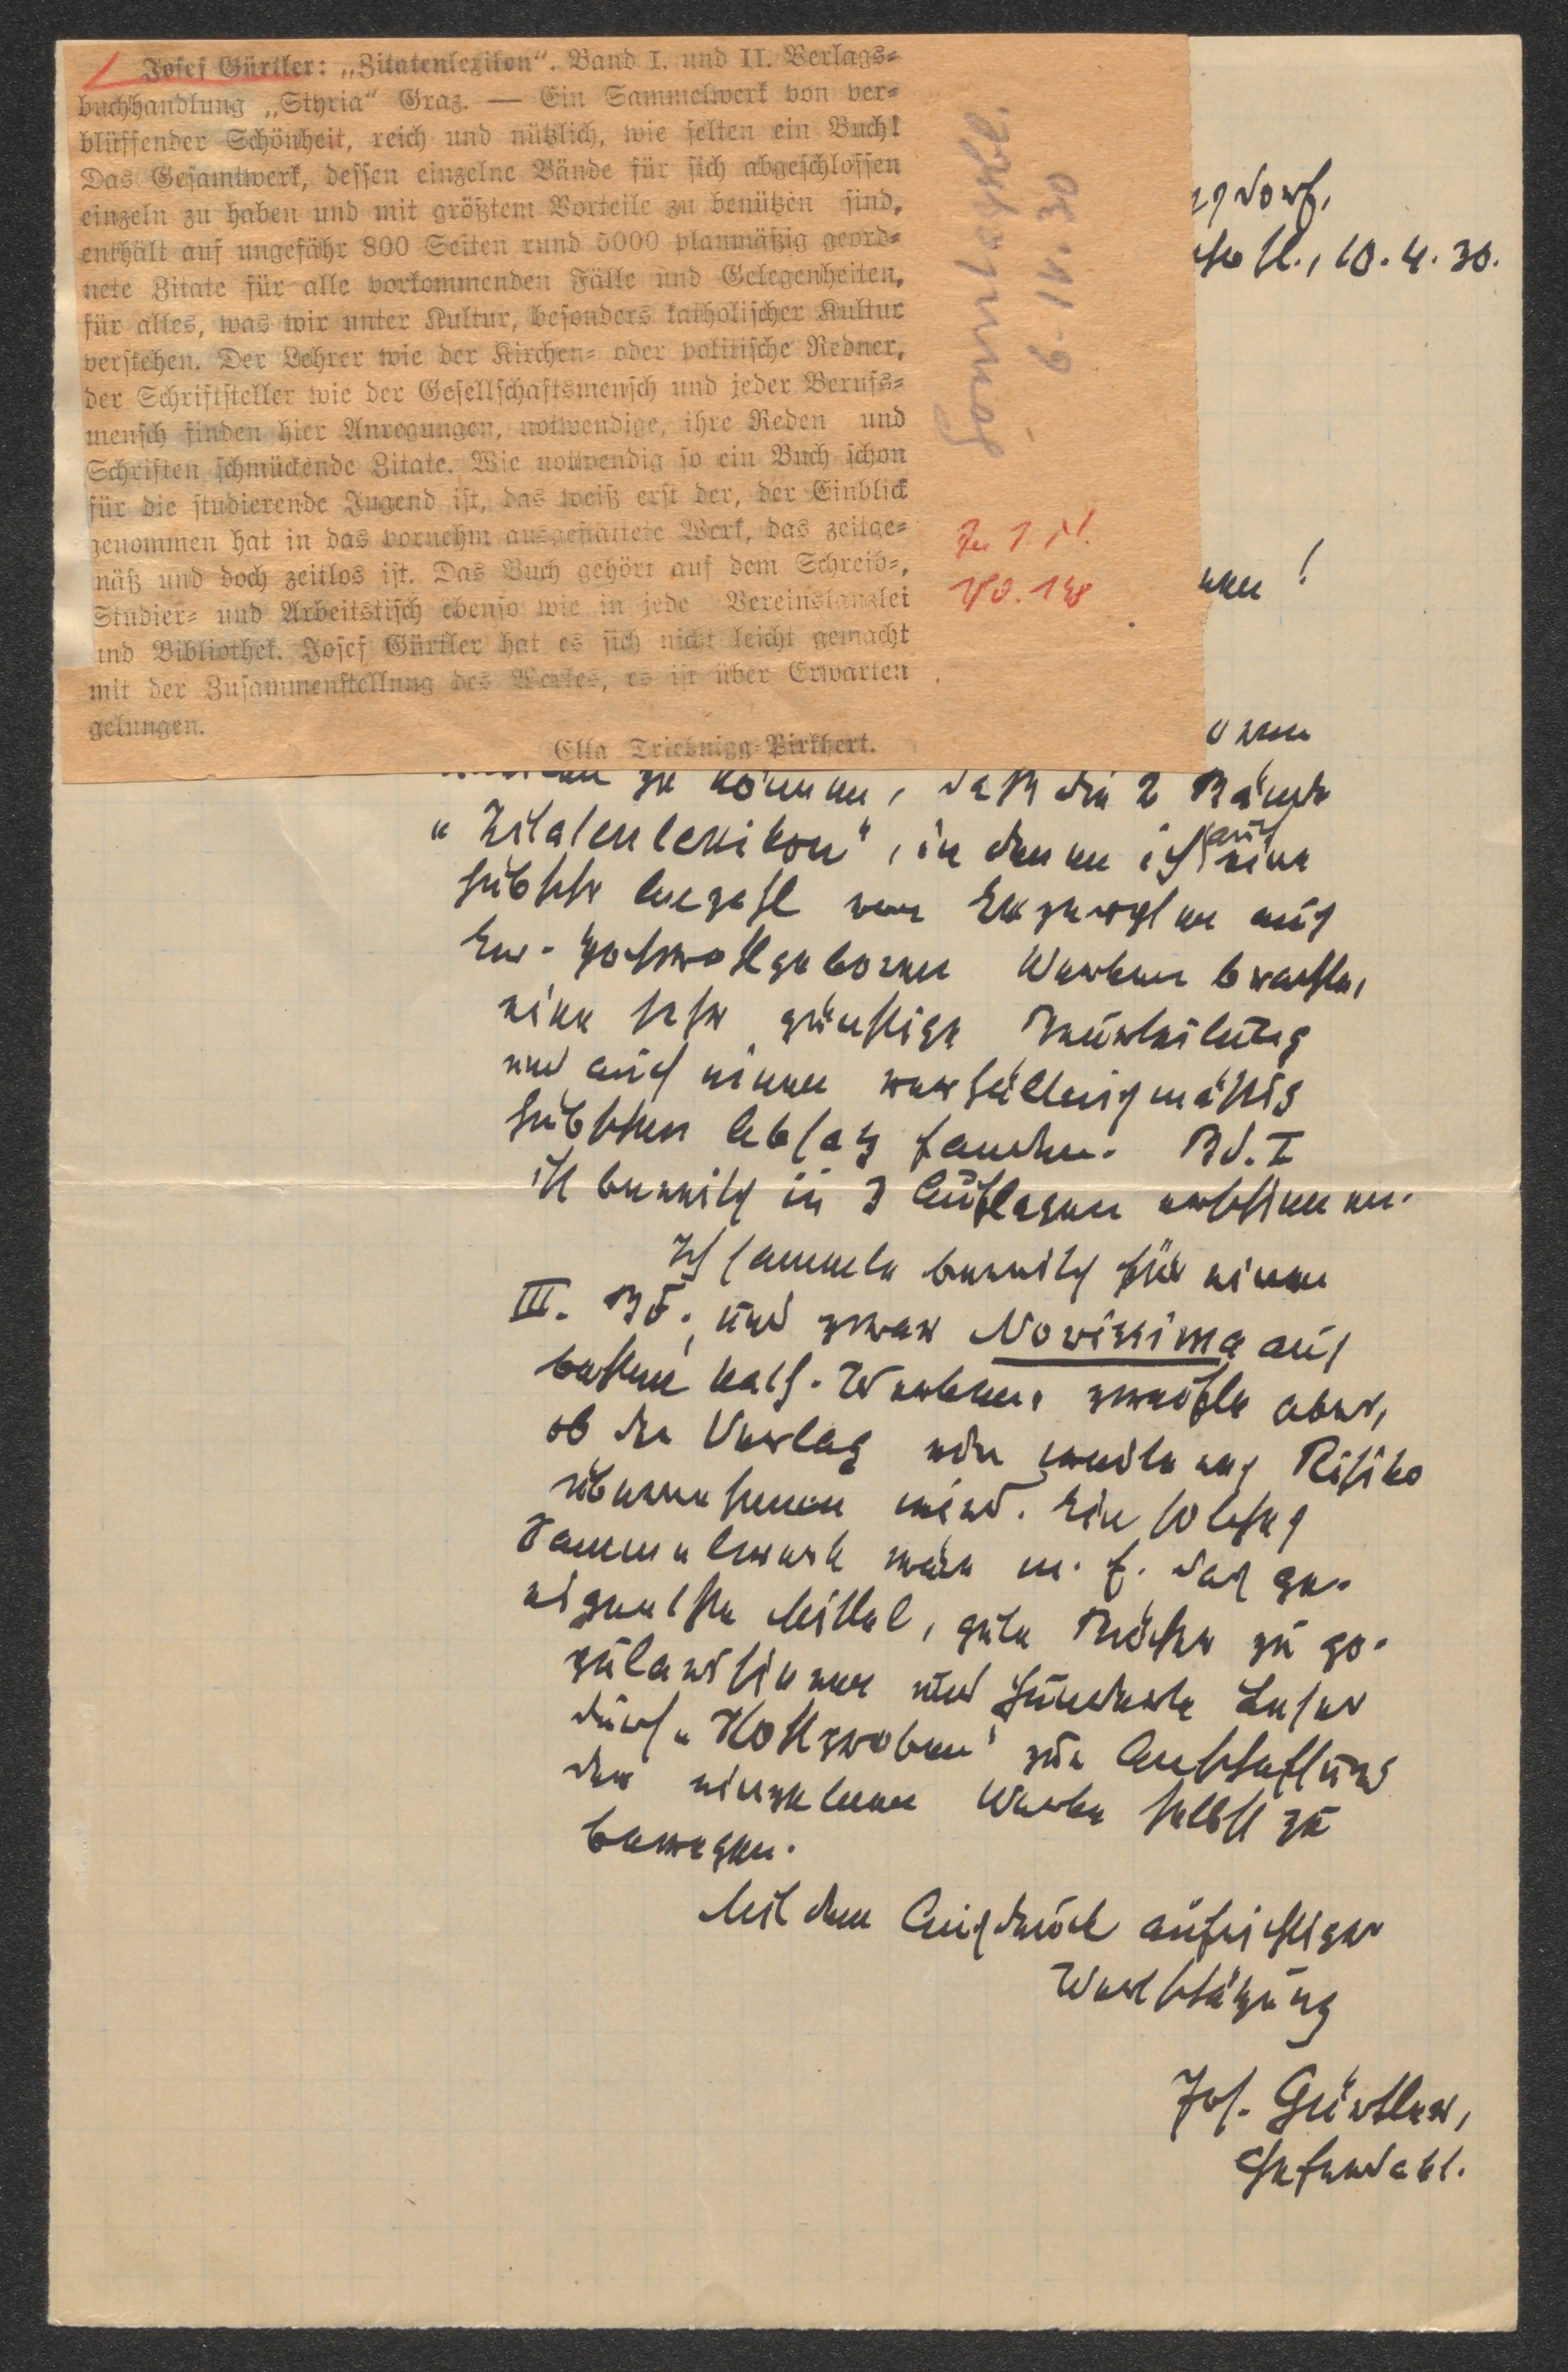 Josef Gürtler: „Zitatenlexikon“. Band I. und II. Verlags=
buchhandlung „Styria“ Graz. — Ein Sammelwerk von ver=
blüffender Schönheit, reich und nützlich, wie selten ein Buch!
Das Gesamtwerk, dessen einzelne Bände für sich abgeschlossen
einzeln zu haben und mit größtem Vorteile zu benützen sind,
enthält auf ungefähr 800 Seiten rund 5000 planmäßig geord=
nete Zitate für alle vorkommenden Fälle und Gelegenheiten,
für alles, was wir unter Kultur, besonders katholischer Kultur
verstehen. Der Lehrer wie der Kirchen= oder politische Redner,
der Schriftsteller wie der Gesellschaftsmensch und jeder Berufs=
mensch finden hier Anregungen, notwendige, ihre Reden und
Schriften schmückende Zitate. Wie notwendig so ein Buch schon
für die studierende Jugend ist, das weiß erst der, der Einblick
genommen hat in das vornehm ausgestattete Werk, das zeitge=
mäß und doch zeitlos ist. Das Buch gehört auf dem Schreib=,
Studier= und Arbeitstisch ebenso wie in jede Vereinskanzlei
und Bibliothek. Josef Gürtler hat es sich nicht leicht gemacht
mit der Zusammenstellung des Werkes, es ist über Erwarten
gelungen.
Ella Triebnigg=Pirkhert.
9. 11. 30
dorf,
10. 4. 30.
zu können, daß die 2 Bände
"Zitatenlexikon", in denen ich auch eine
hübsche Anzahl von Exzerpten aus
Ew. Hochwohlgeboren Werken brachte,
eine sehr günstige Beurteilung
und auch einen verhältnismäßig
hübschen Absatz fanden. Bd. I
ist bereits in 3 Auflagen erschienen.
Ich sammle bereits für einen
III. Bd., und zwar Novissima aus
besten kath. Werken, zweifle aber,
ob der Verlag ein Risiko
übernehmen wird. Ein solches
Sammelwerk wäre m. E. das ge-
eignetste Mittel, gute Bücher zu po-
pularisieren und hunderte Leser
durch "Kostproben" zur Anschaffung
der einzelnen Werke selbst zu
bewegen.
Mit dem Ausdruck aufrichtiger
Wertschätzung
Jos. Gürtler,